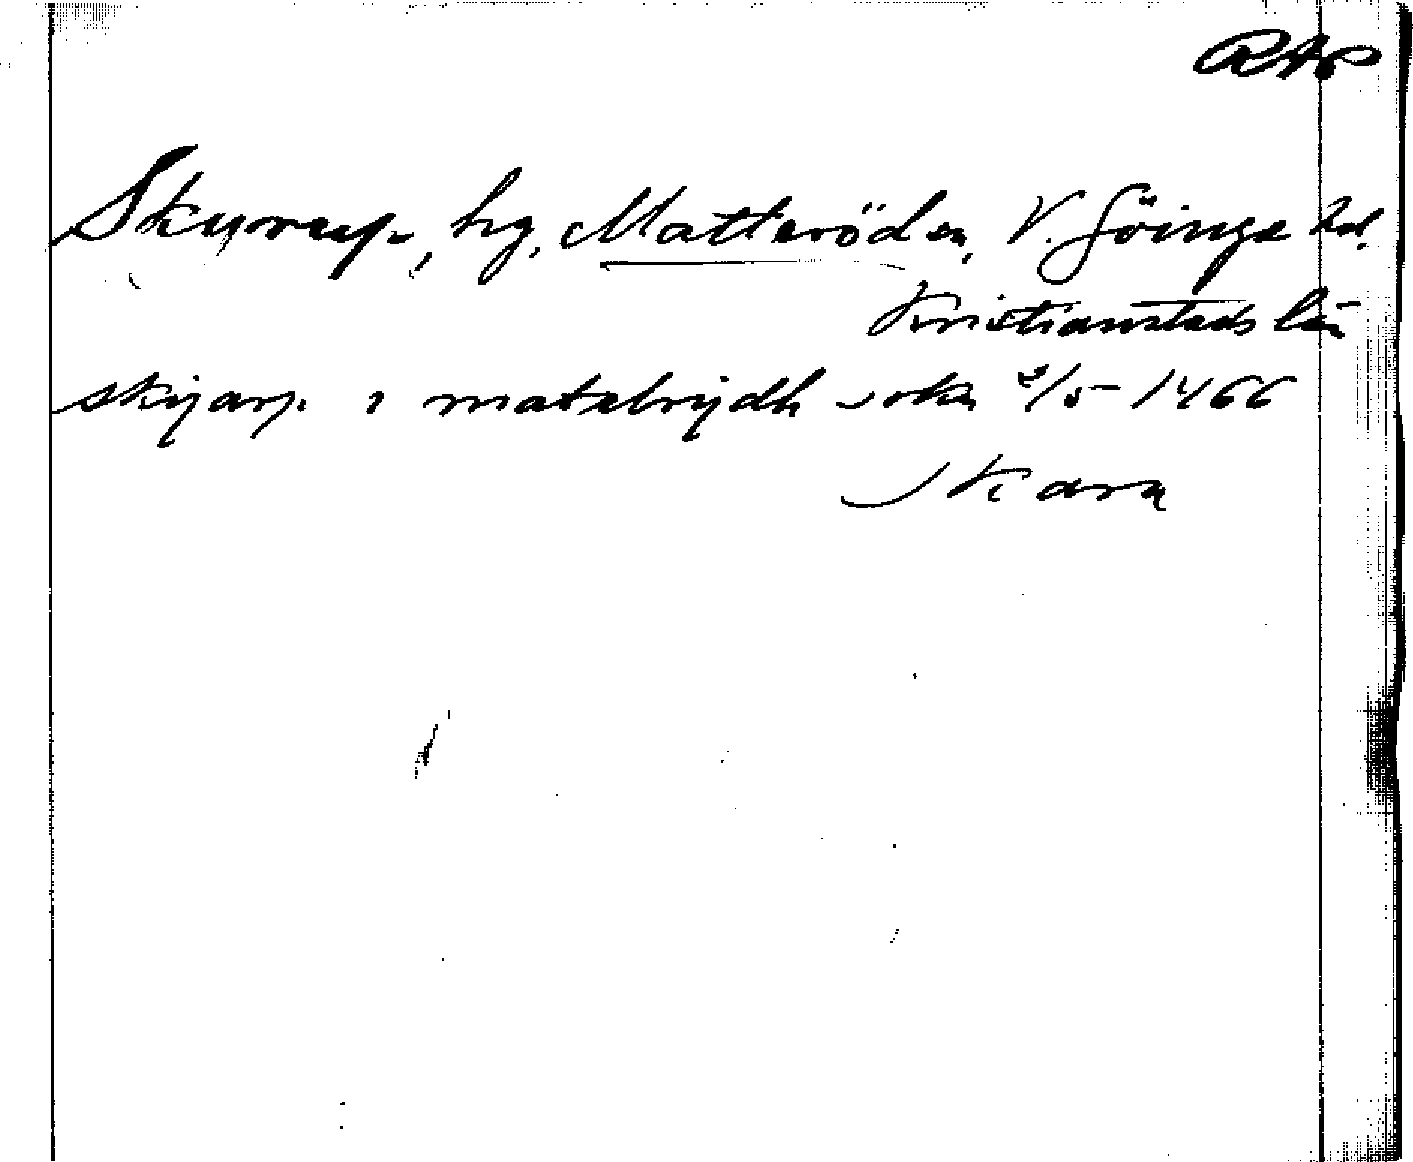 RAP
Skyrup, hg, Matteröds sn, V. Göinge hd.
Kristianstads län
skijarp i matzlrijdh sokn 2/5 1466
Skara